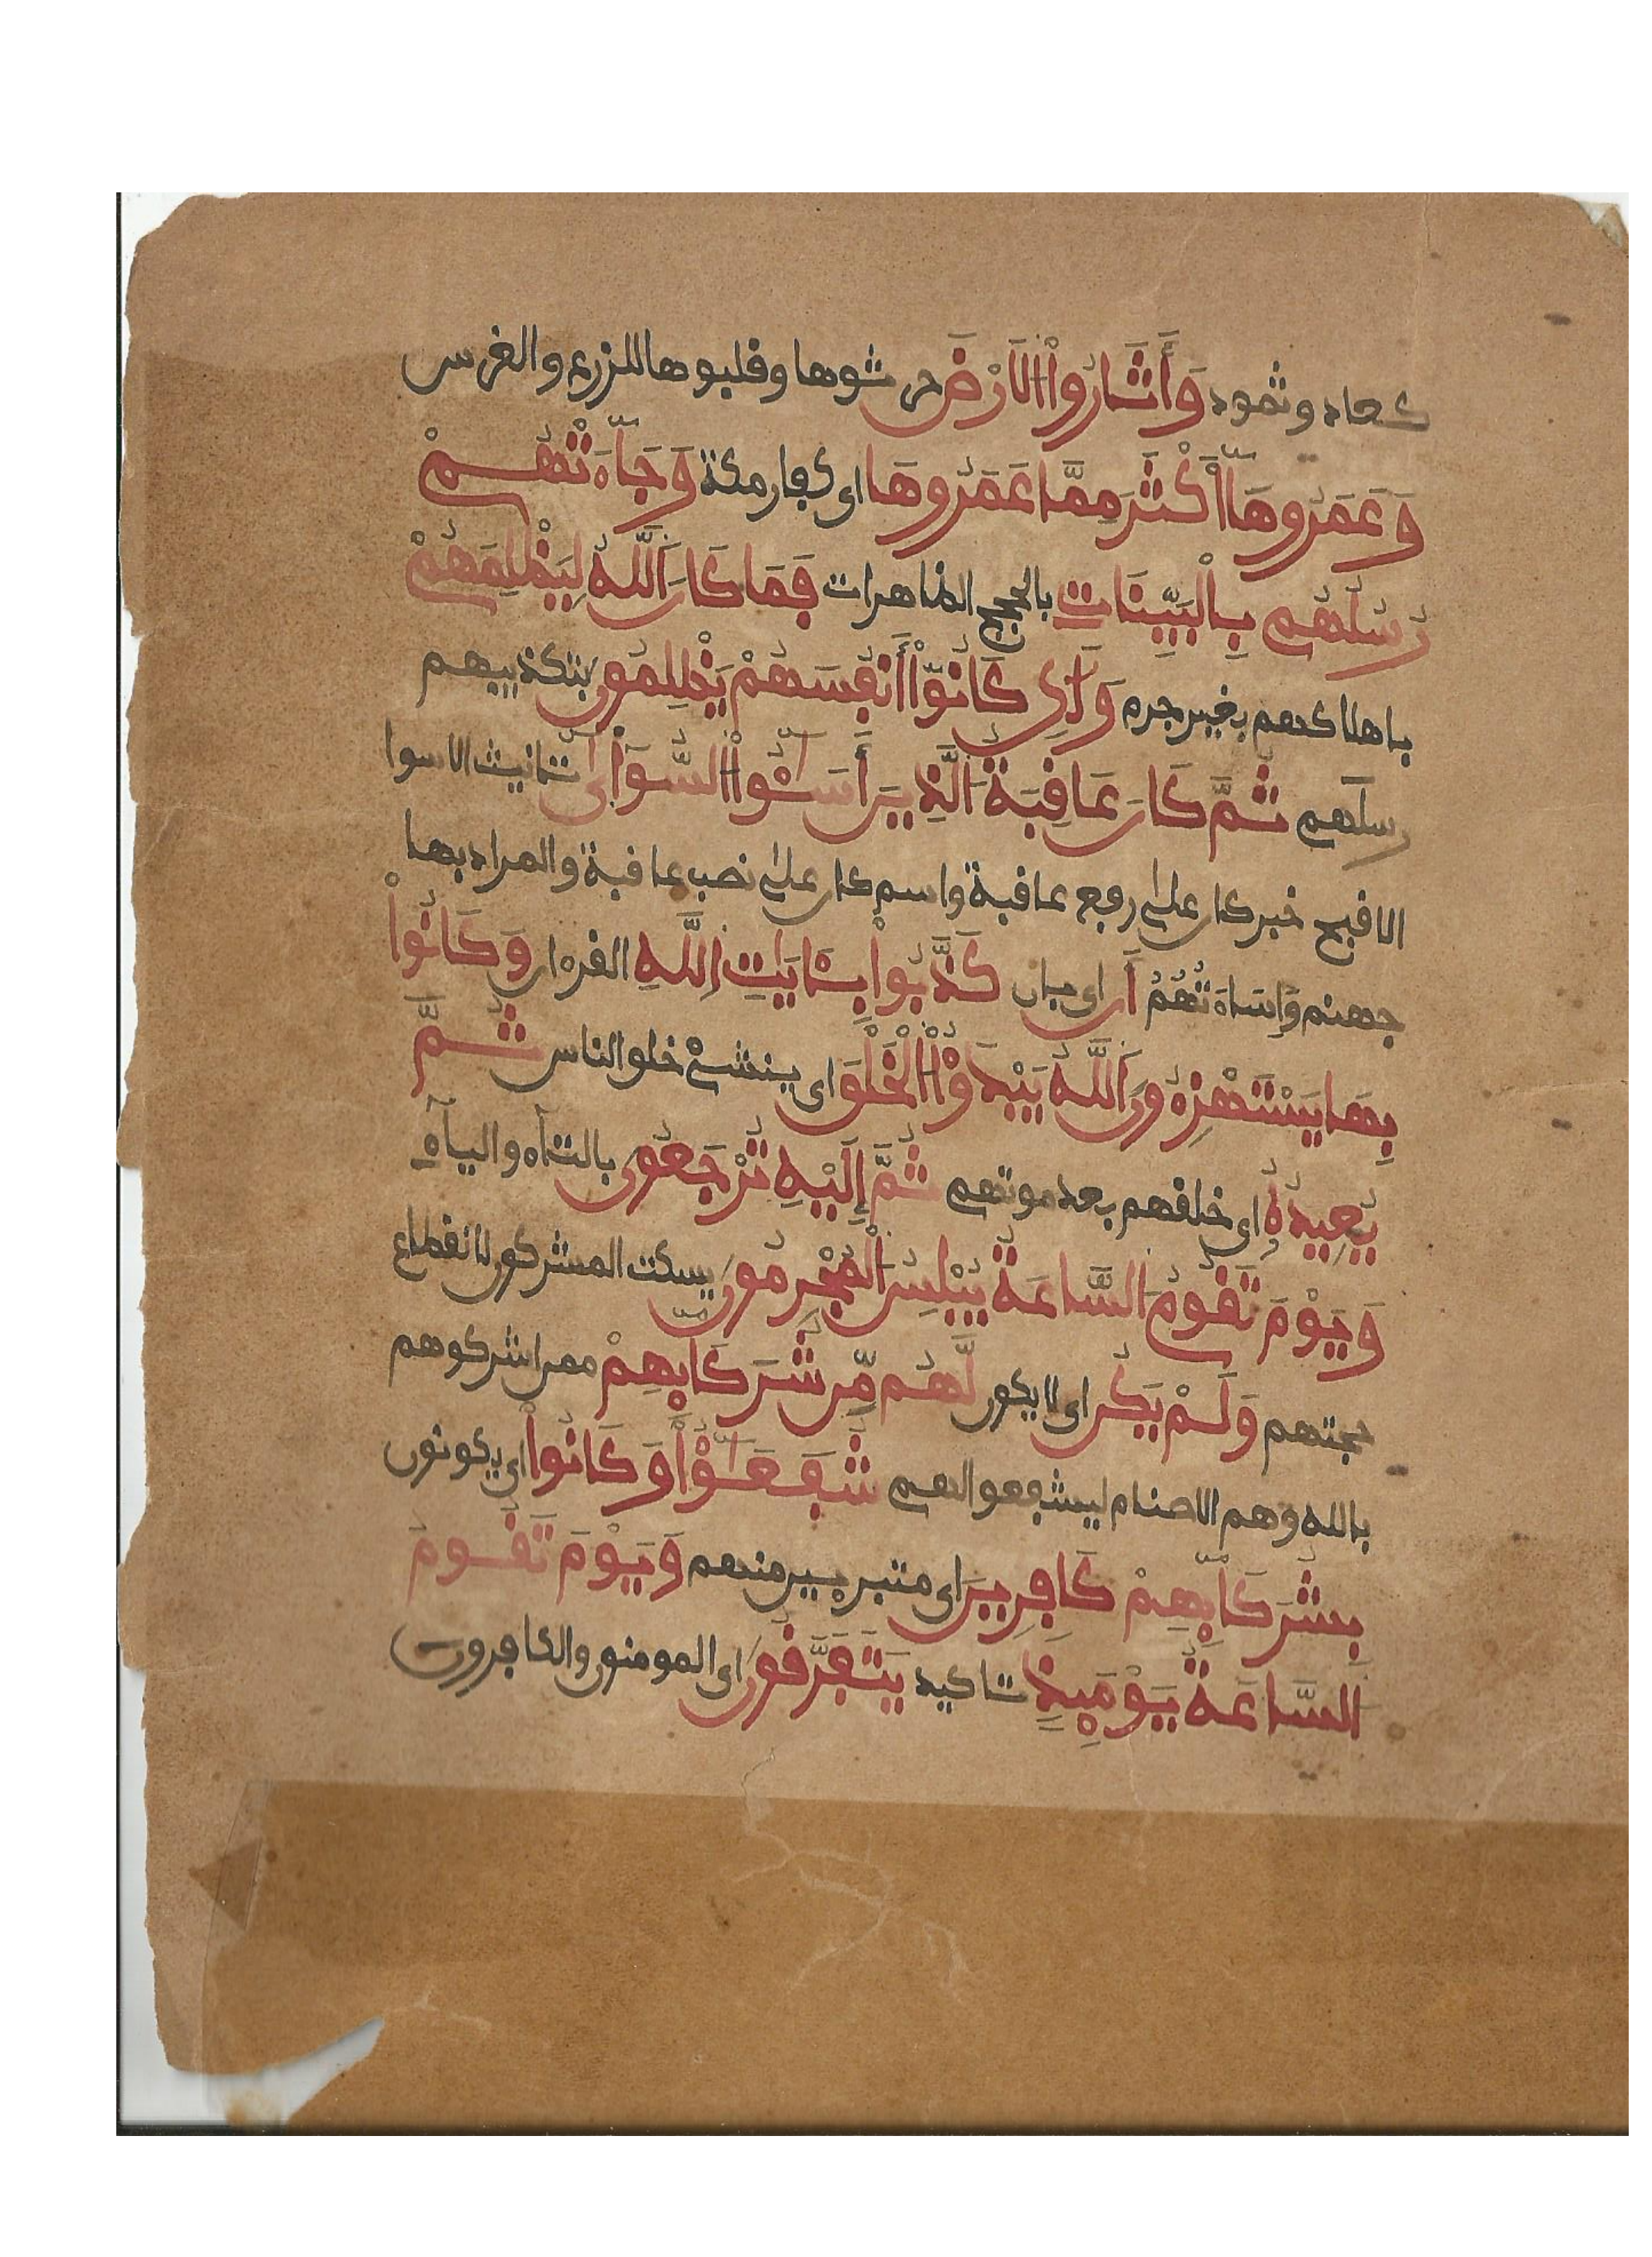 كعاد وثمود وَأَثَارُواْ الَارْضَ حرثوها وقلبوها للزرع والغرس
وَعَمَرُوهَا أَكْثَرَ مِمَّا عَمَرُوهَا اى كفار مكة وَجَآءَتْهُمْ
رُسُلُهُم بِالْبَيِّنَاتِ بالحجج الظاهرات فَمَا كَانَ اَللَّهُ لِيَظْلِمَهُمْ
باهلاكهم بغير جرم وَلَٰكِن كَانُوٓاْ أَنفُسَهُمْ يَظْلِمُونَ بتكذيبهم
رسلهم ثُمَّ كَانَ عَاقِبَةُ اَلَّذِينَ أَسَٰٓـُٔواْ السُّوٓأَىٰٓ تانيث الاسوا
الاقبح خبر كان على رفع عاقبة واسم كان على نصب عاقبة والمراد بها
جهنم وإساءتُهُمُ أَن اى بان كَذَّبُواْ بِـَٔايَٰتِ اِللَّهِ القرءان وَكَانُواْ
بِهَا يَسْتَهْزِءُونَ اَللَّهُ يَبْدَؤُاْ الْخَلْقَ اى ينشئ خلق الناس ثُمَّ
يُعِيدُهُ اى خلقهم بعد موتهم ثُمَّ إِلَيْهِ تُرْجَعُونَ بالتآء واليآء
وَيَوْمَ تَقُومُ السَّاعَةُ يُبْلِسُ الْمُجْرِمُونَ يسكت المشركون لانقطاع
حجتهم وَلَمْ يَكُن اى لا يكون لَّهُم مِّن شُرَكَآئِهِمْ ممن اشركوهم
بالله وهم الاصنام ليشفعوا لهم شُفَعَٰٓؤُاْ وَكَانُواْ اى يكونون
بِشُرَكَآئِهِمْ كَافِرِينَ اى متبرءين منهم وَيَوْمَ تَقُومُ
اُلسَّاعَةُ يَوْمَئِذٍ تاكيد يَتَفَرَّقُونَ اى المومنون والكافرون